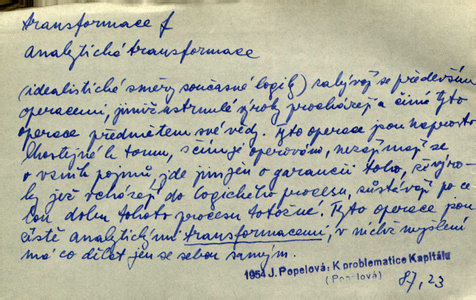 transformace f
analytická transformace
(idealistické směry současné logiky) zabývají se především
operacemi, jimiž ustrnulé výroky procházejí a činí tyto
operace předmětem své vědy. Tyto operace jsou naprosto
lhostejné k tomu, s čím je operováno, nezajímají se
o vznik pojmů, jde jim jen o garancii toho, že výro-
ky jež vcházejí do logického procesu, zůstávají po ce-
lou dobu tohoto procesu totožné. Tyto operace jsou
čistě analytickými transformacemi, v nichž myšlení
má co dělat jen se sebou samým.
1954 J. Popelová: K problematice Kapitálu
(Popelová)
87, 23